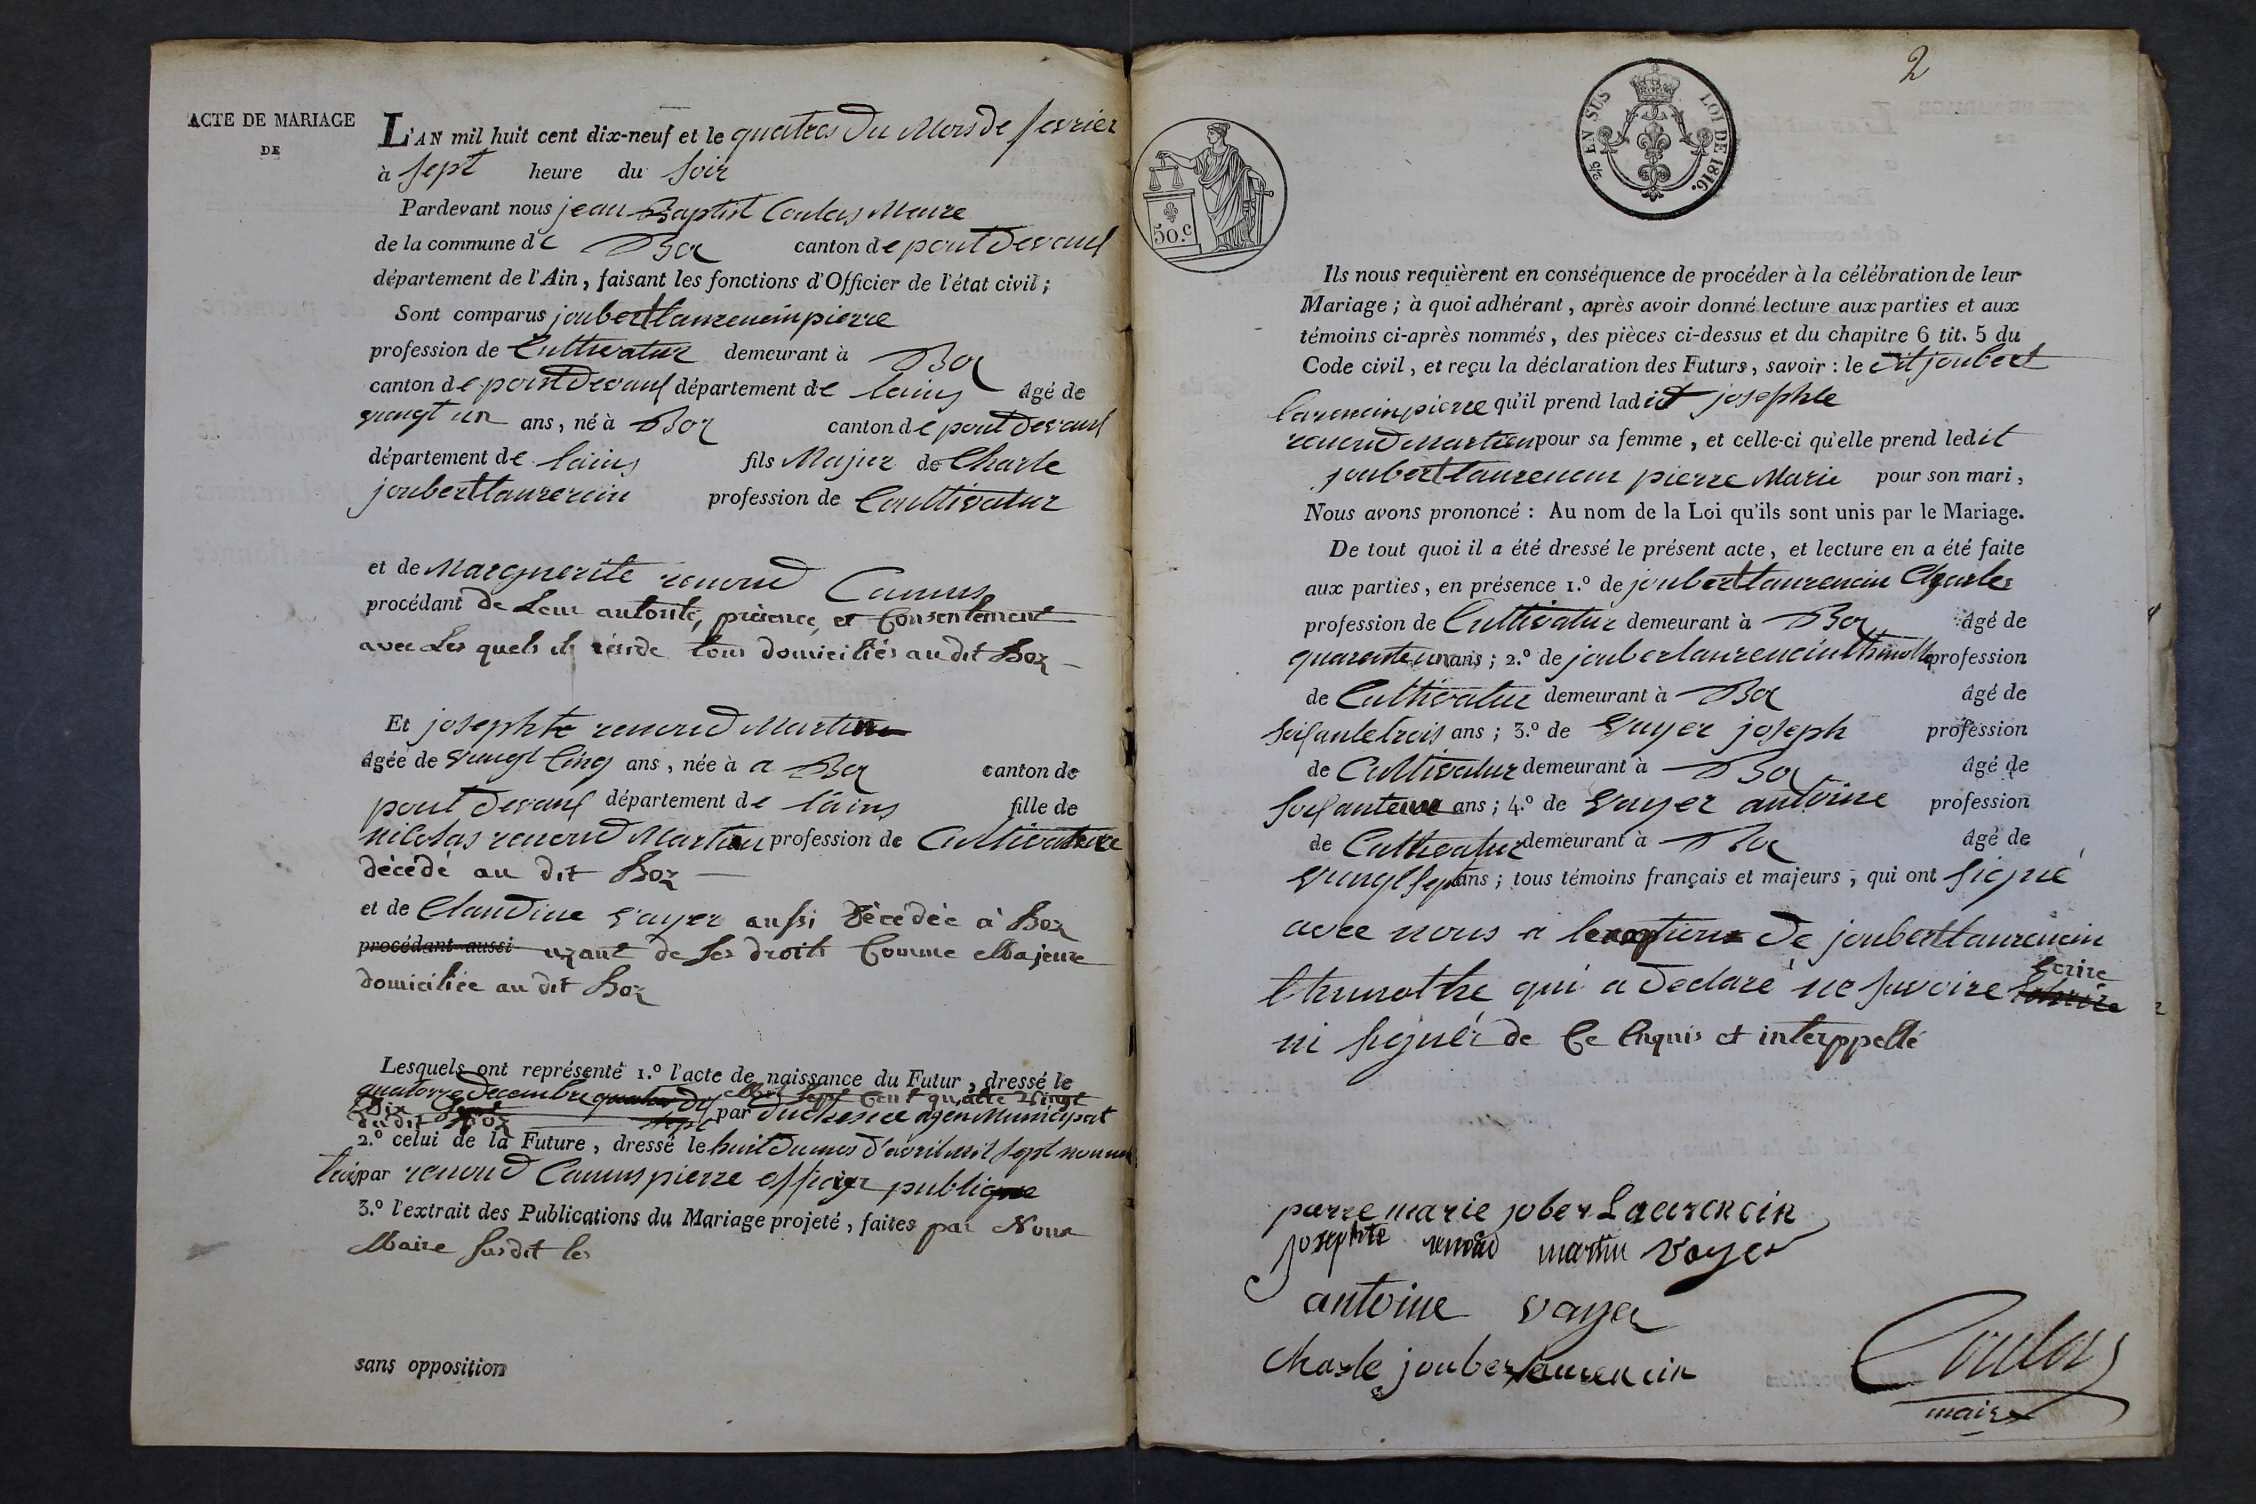 ACTE DE MARIAGE
DE
L'AN mil huit cent dix-neuf et le quatres du Mois de fevrier
à sept heure du soir
Pardevant nous jean Baptist Coulas Maire
de la commune de Boz canton de pont devaux
département de l'Ain, faisant les fonctions d'Officier de l'état civil;
Sont comparus joubert laurencin pierre
profession de Cultivatur demeurant à Boz
canton de pont devaux département de lains âgé de
vungt un ans, né à Boz canton de pont devaux
département de lains fils Majur de Charle
joubert laurencin profession de Coultivatur
et de Marguerite renoud Camus
procédant de Leur autorité, présence, et Consentement
avec Les quels il réside tous domiciliés au dit Boz
Et josephte renoud Martin
âgée de vungt cinq ans, née à a Boz canton de
pont devaux département de lains fille de
nicolas renoud Martin profession de Cultivature
décédé au dit Boz
et de Claudine vayer aussi décédée à Boz
procédant aussi uzant de ses droits Comme Majeure
domiciliée au dit Boz
Lesquels ont représenté 1.º l'acte de naissance du Futur, dressé le
quatorze decembre Mil sept Cent quatre Vingt
Dix Sept par duchesne agen Municipat
du dit Boz
2.º celui de la Future, dressé le huit du mois d'avril mil sept
trois par renoud Camus pierre officier publique
3.º l'extrait des Publications du Mariage projeté, faites par Nous
Maire susdit les
sans opposition
2
EN SUS LOI DE 1816.
50.c
Ils nous requièrent en conséquence de procéder à la célébration de leur
Mariage; à quoi adhérant, après avoir donné lecture aux parties et aux
témoins ci-après nommés, des pièces ci-dessus et du chapitre 6 tit. 5 du
Code civil, et reçu la déclaration des Futurs, savoir: le dit joubert
larencin pierre qu'il prend ladit josephte
renoud Martin pour sa femme, et celle-ci qu'elle prend ledit
joubert laurencin pierre Marie pour son mari,
Nous avons prononcé: Au nom de la Loi qu'ils sont unis par le Mariage.
De tout quoi il a été dressé le présent acte, et lecture en a été faite
aux parties, en présence 1.º de joubert laurencin Charles
profession de Cultivatur demeurant à Boz âgé de
quarante un ans; 2.º de jouber laurencin thimothe profession
de Cultivatur demeurant à Boz âgé de
soisante trois ans; 3.º de vayer joseph profession
de Cultivatur demeurant à Boz âgé de
soisante ans; 4.º de vayer antoine profession
de Cultivatur demeurant à Boz âgé de
vungt sept ans; tous témoins français et majeurs, qui ont signé
avec nous a lexeptions de joubert laurencin
thimothe qui a declaré ne savoire écrire
ni signér de Ce Enquis et interppellé
pierre marie jober Laurencin
josephte renoud martin Vayer
antoine vayer
charle jouber laurencin
Coulas
maire